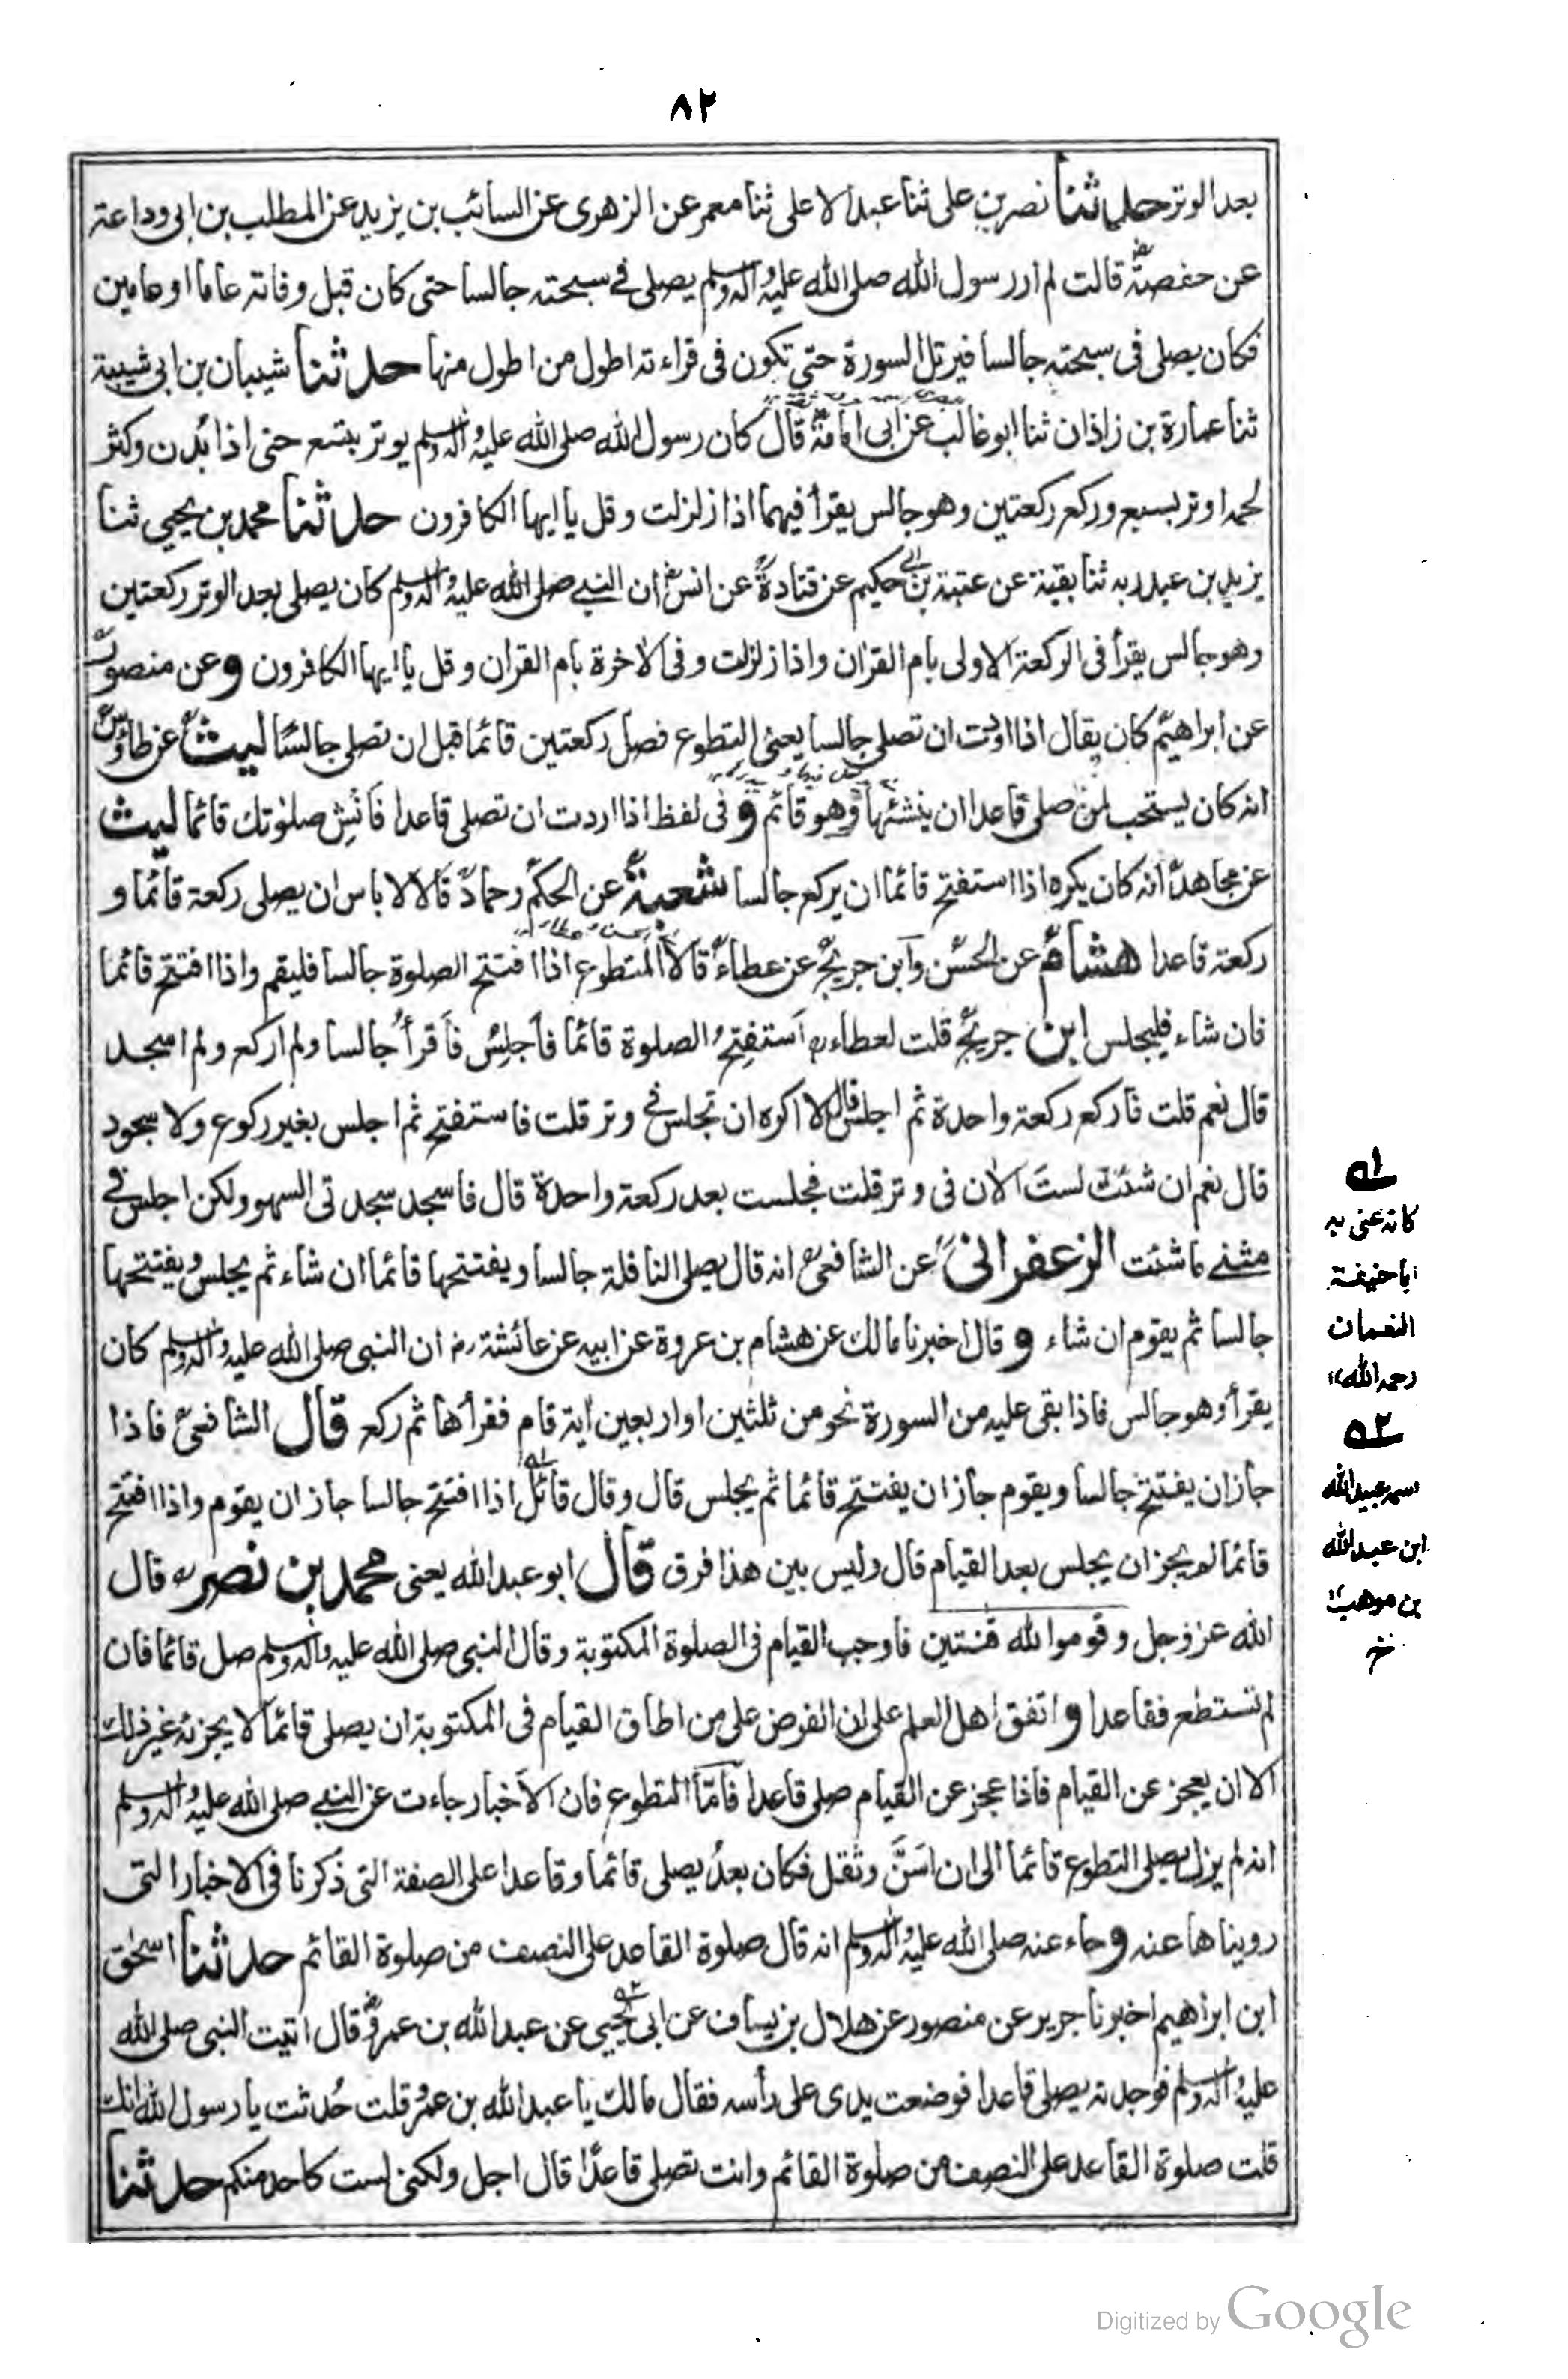 ٨٢
بعد الوتر حدثنا نصر بن على ثنا عبد الاعلى ثنا معمر عن الزهرى عن السائب بن يزيد عن المطلب بن ابى وداعة
عن حفصة قالت لم ار رسول الله صلى الله عليه واله وسلم يصلى فى سبحته جالسا حتى كان قبل وفاته عاما او عامين
فكان يصلى فى سبحته جالسا فيرتل السورة حتى تكون فى قراءته اطول من اطول منها حدثنا شيبان بن ابى شيبة
ثنا عمارة بن زاذان ثنا ابو غالب عن ابى امامة قال كان رسول الله صلى الله عليه واله وسلم يوتر بتسع حتى اذا بدن وكثر
لحمه اوتر بسبع وركع ركعتين وهو جالس يقرأ فيهما اذا زلزلت وقل يا ايها الكافرون حدثنا محمد بن يحيى ثنا
يزيد بن عبد ربه ثنا بقية عن عتبة بن ابى حكيم عن قتادة عن انس ان النبى صلى الله عليه واله وسلم كان يصلى بعد الوتر ركعتين
وهو جالس يقرأ فى الركعة الاولى بام القران واذا زلزلت وفى الاخرة بام القران وقل يا ايها الكافرون وعن منصور
عن ابراهيم كان يقال اذا اردت ان تصلى جالسا يعنى التطوع فصل ركعتين قائما قبل ان تصلى جالسا ليث عن طاؤس
انه كان يستحب لمن صلى قاعدا ان ينشئها وهو قائم وفى لفظ اذا اردت ان تصلى قاعدا فانش صلوتك قائما ليث
عن مجاهد انه كان يكره اذا استفتح قائما ان يركع جالسا شعبة عن الحكم وحماد قالا لا باس ان يصلى ركعة قائما و
ركعة قاعدا هشام عن الحسن وابن جريج عن عطاء قالا المتطوع اذا افتتح الصلوة جالسا فليقم واذا افتتح قائما
فان شاء فليجلس ابن جريج قلت لعطاء استفتح الصلوة قائما فاجلس فاقرأ جالسا ولم اركع ولم اسجد
قال نعم قلت فاركع ركعة واحدة ثم اجلس قال لا اكره ان تجلس فى وتر قلت فاستفتح ثم اجلس بغير ركوع ولا سجود
قال نعم ان شئت لست الان فى وتر قلت فجلست بعد ركعة واحدة قال فاسجد سجدتى السهو ولكن اجلس فى
مثنى ما شئت الزعفرانى عن الشافعى انه قال يصلى النافلة جالسا ويفتتحها قائما ان شاء ثم يجلس ويفتتحها
جالسا ثم يقوم ان شاء وقال اخبرنا مالك عن هشام بن عروة عن ابيه عن عائشة رض ان النبى صلى الله عليه واله وسلم كان
يقرأ وهو جالس فاذا بقى عليه من السورة نحو من ثلثين او اربعين اية قام فقرأها ثم ركع قال الشافعى فاذا
جاز ان يفتتح جالسا ويقوم جاز ان يفتتح قائما ثم يجلس قال وقال قائل اذا افتتح جالسا جاز ان يقوم واذا افتتح
قائما لم يجز ان يجلس بعد القيام قال وليس بين هذا فرق قال ابو عبد الله يعنى محمد بن نصر قال
الله عز وجل وقوموا لله قنتين فاوجب القيام فى الصلوة المكتوبة وقال النبى صلى الله عليه واله وسلم صل قائما فان
لم تستطع فقاعدا واتفق اهل العلم على ان الفرض على من اطاق القيام فى المكتوبة ان يصلى قائما لا يجزئه غير ذلك
الا ان يعجز عن القيام فاذا عجز عن القيام صلى قاعدا فاما التطوع فان الاخبار جاءت عن النبى صلى الله عليه واله وسلم
انه لم يزل يصلى التطوع قائما الى ان اسن وثقل فكان بعد يصلى قائما وقاعدا على الصفة التى ذكرنا فى الاخبار التى
رويناها عنه وجاء عنه صلى الله عليه واله وسلم انه قال صلوة القاعد على النصف من صلوة القائم حدثنا اسحق
ابن ابراهيم اخبرنا جرير عن منصور عن هلال بن يساف عن ابى يحيى عن عبد الله بن عمرو قال اتيت النبى صلى الله
عليه واله وسلم فوجدته يصلى قاعدا فوضعت يدى على رأسه فقال مالك يا عبد الله بن عمرو قلت حدثت يا رسول الله انك
قلت صلوة القاعد على النصف من صلوة القائم وانت تصلى قاعدا قال اجل ولكنى لست كاحد منكم حدثنا
١ه
كانه عنى به
ابا حنيفة
النعمان
رحمه الله
٢ه
اسمه عبيد الله
ابن عبد الله
بن موهب
Digitized by Google